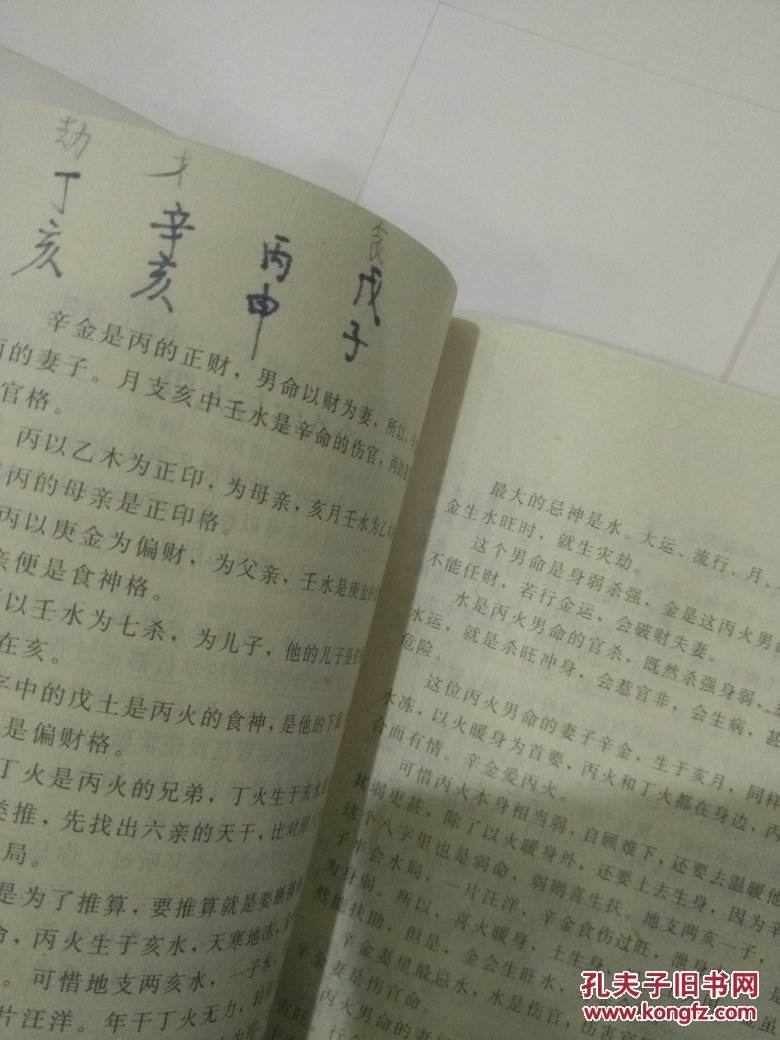 劫 才 食
丁 辛 丙 戊
亥 亥 申 子
辛金是丙的正财，男命以财为妻，所以，
的妻子。月支亥中壬水是辛命的伤官，
官格。
丙以乙木为正印，为母亲，亥月壬水为乙
丙的母亲是正印格。
丙以庚金为偏财，为父亲，壬水是庚金
亲便是食神格。
以壬水为七杀，为儿子，他的儿子是
在亥。
字中的戊土是丙火的食神，是他的下属
是偏财格。
丁火是丙火的兄弟，丁火生于亥水
类推，先找出六亲的天干，比对
局。
是为了推算，要推算就是要
命，丙火生于亥水，天寒地冻，
。可惜地支两亥水，一子水，
片汪洋。年干丁火无力，
最大的忌神是水。大运、流行、月、
金生水旺时，就生灾劫。
这个男命是身弱杀强，金是这丙火男命
不能任财，若行金运，会破财失妻。
水是丙火男命的官杀，既然杀强身弱，
水运，就是杀旺冲身，会惹官非，会生病，甚
危险。
这位丙火男命的妻子辛金，生于亥月，同样
水冻，以火暖身为首要，丙火和丁火都在身边，丙
合而有情。辛金爱丙火。
可惜丙火本身相当弱，自顾难下，还要去温暖他
其弱更甚，除了以火暖身外，还要土去生身，因为辛
这个八字里也是弱命，弱则喜生扶。地支两亥一子，
子半会水局，一片汪洋，辛金食伤过旺，泄身
为身弱。所以，喜火暖身，土生身，
然能扶助，但是，金会生旺水，
辛金妻星最忌水，水是伤官，伤害官
辛金妻是伤官命
丙火男命的妻
行金